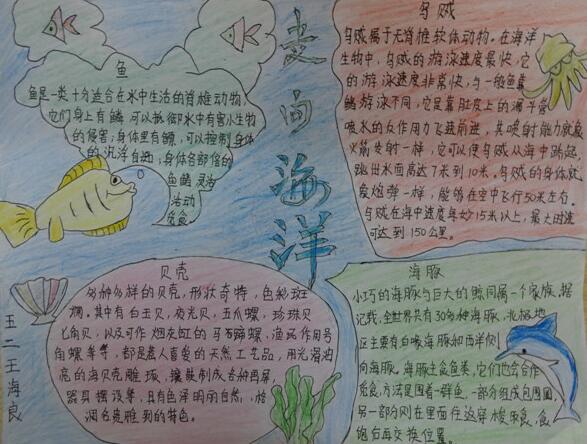 走向海洋
鱼
鱼是一类十分适合在水中生活的脊椎动物,
它们身上有鳞,可以抵御水中有害小生物
的侵害;身体里有鳔,可以控制身体
的沉浮自如;身体各部位的
鱼鳍灵活
活动
觅食。
乌贼
乌贼属于无脊椎软体动物。在海洋
生物中,乌贼的游泳速度最快,它
的游泳速度非常快,与一般鱼靠
鳍游泳不同,它是靠肚皮上的漏斗管
喷水的反作用力飞速前进,其喷射能力就象
火箭发射一样,它可以使乌贼从海中跃起,
跳出水面高达7米到10米,乌贼的身体就
象炮弹一样,能够在空中飞行50米左右。
乌贼在海中速度每妙15米以上,最大时速
可达到150公里。
贝壳
多种多样的贝壳,形状奇特,色彩斑
斓,其中有白玉贝,夜光贝,五爪螺,珍珠贝
七角贝,以及可作烟灰缸的马蹄蹄螺,渔民作用号
角螺等等,都是惹人喜爱的天然工艺品,用光滑油
亮的海贝壳雕琢,镶嵌制成各种画屏,
器具摆设等,具有色泽明丽自然,
海豚
小巧的海豚与巨大的鲸同属一个家族,据
记载,全世界共有30多种海豚,北极地
区主要有白喙海豚和西洋侧
向海豚。海豚主食鱼类,它们也会合作
觅食,方法是围着一群鱼,一部分组成包围圈,
另一部分则在里面往返穿梭取食,食
饱后再交换位置。
五二王海良